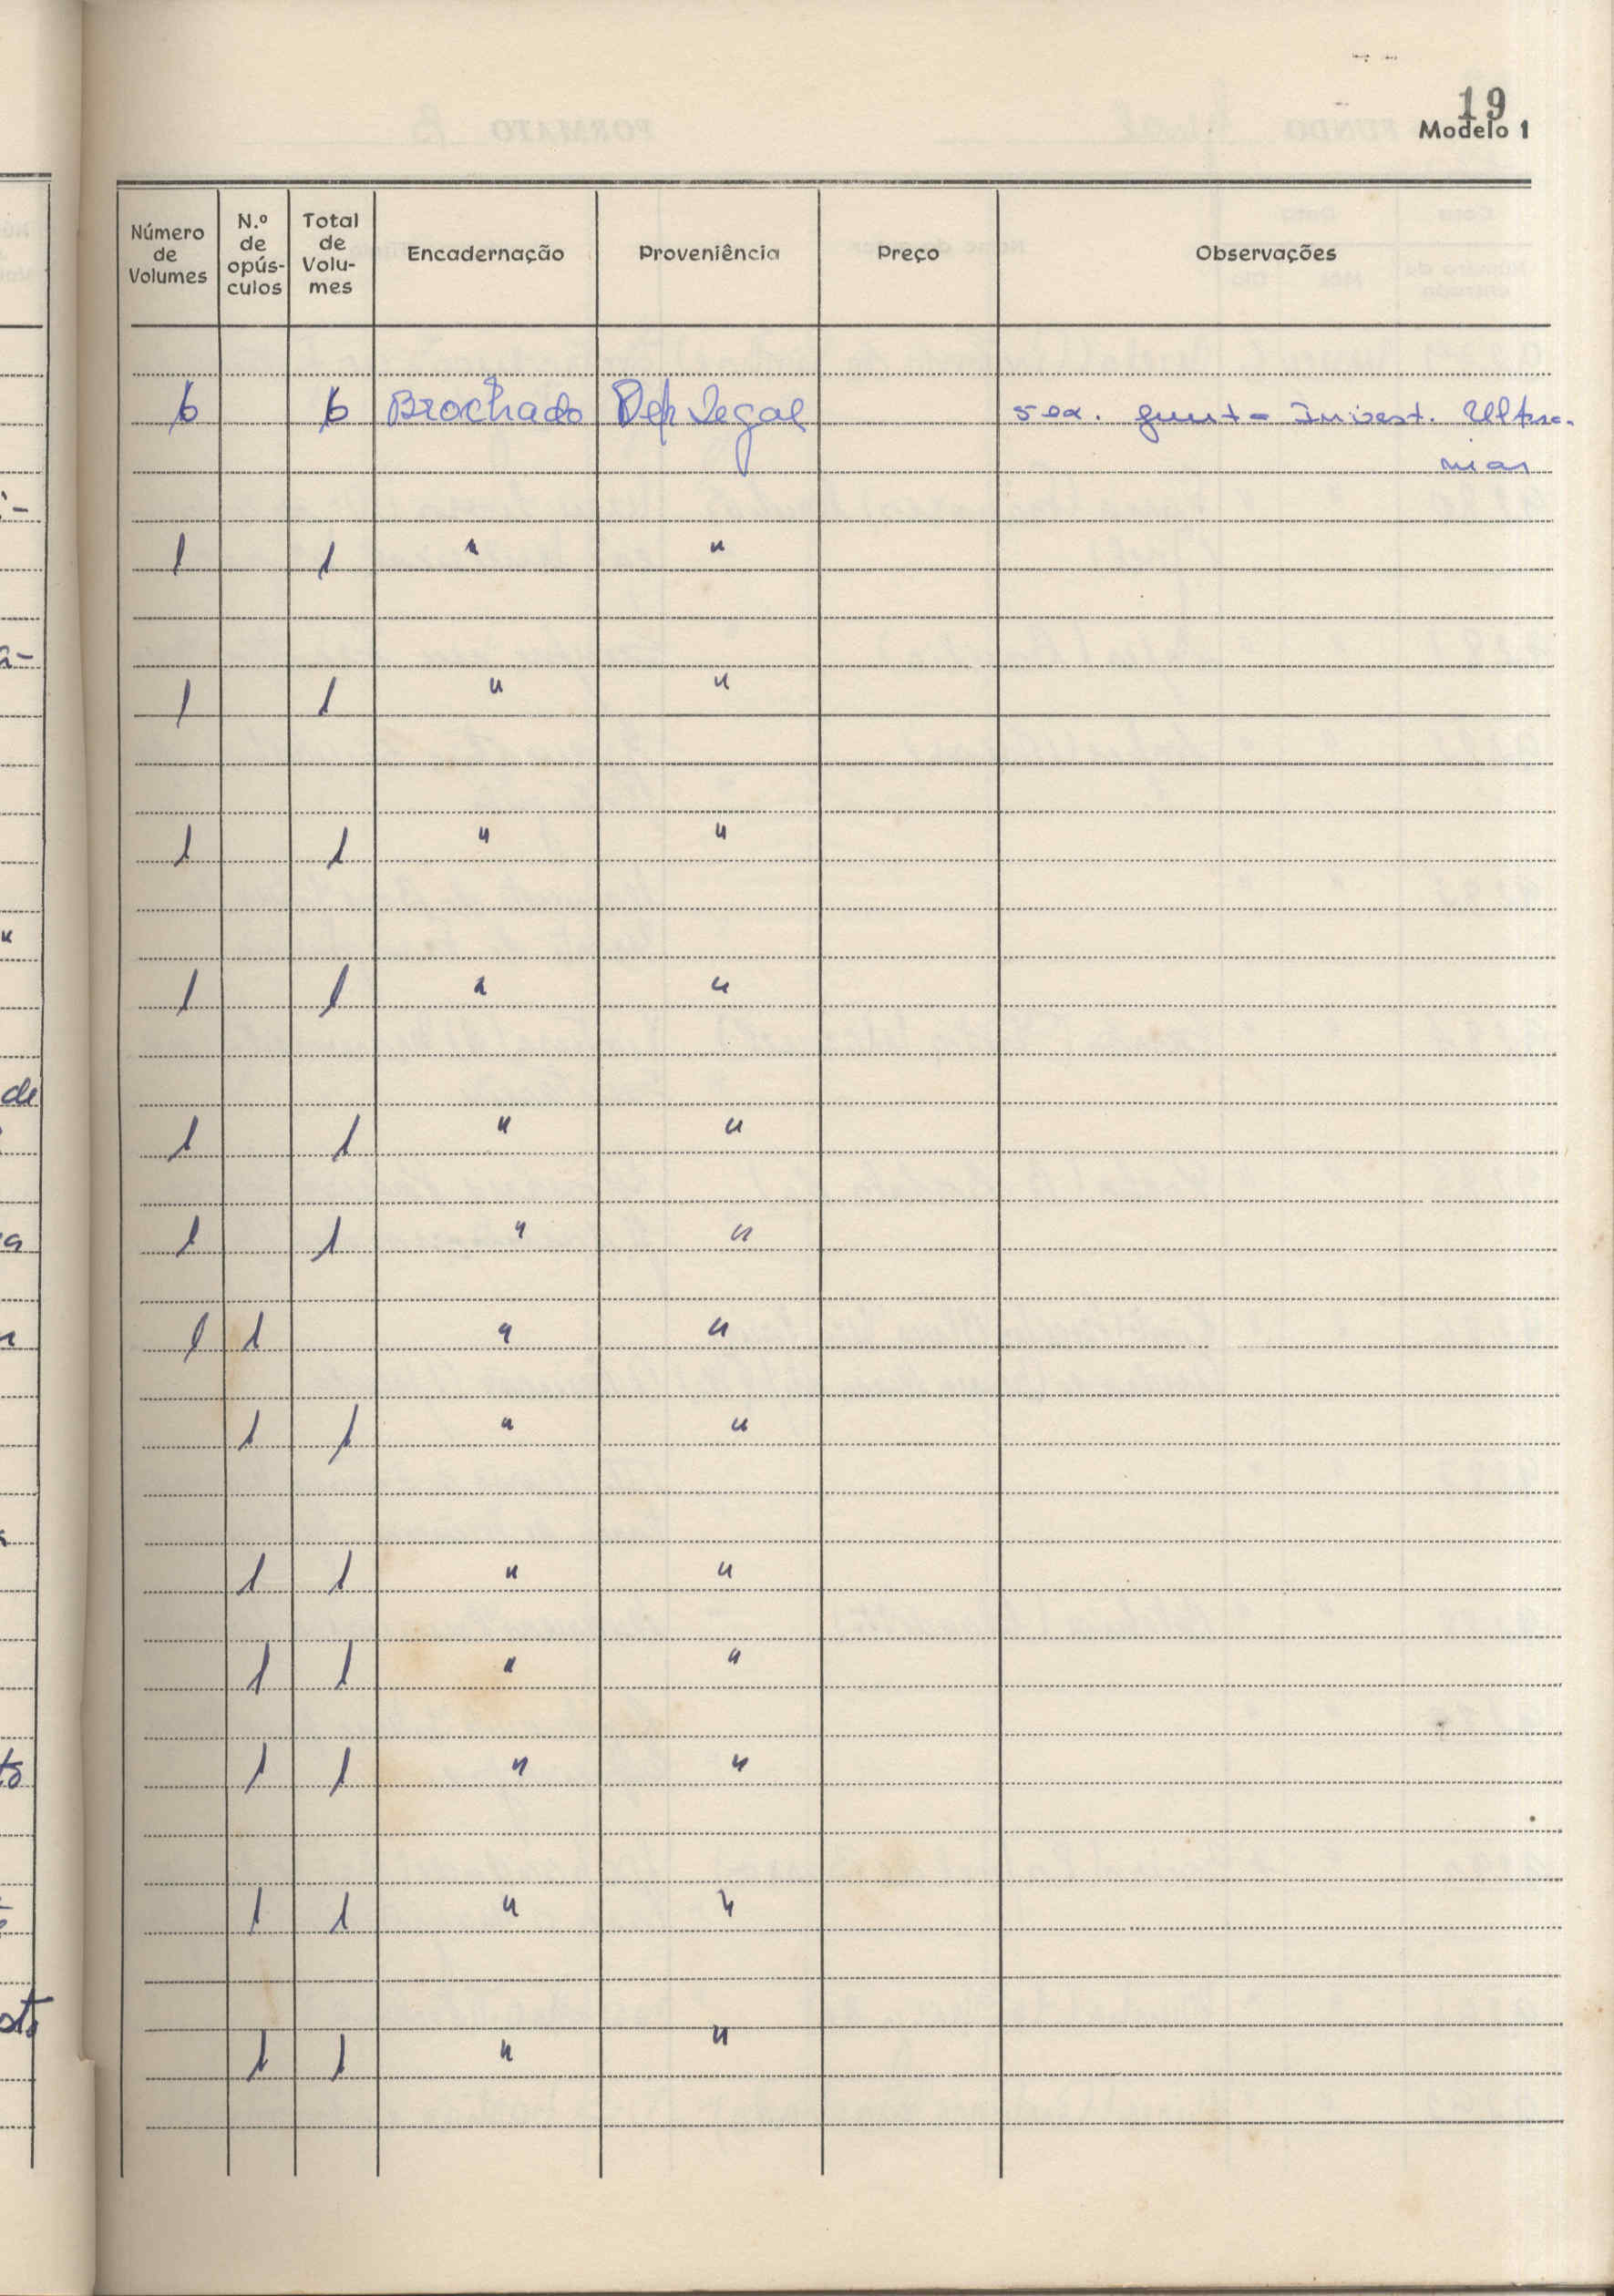 19
Modelo 1
Número de Volumes N.º de opús-culos Total de Volu-mes Encadernação Proveniência Preço Observações
6 6 Brochado Dep Legal Junt- Invest. Ultra-
mar
1 1 " "
1 1 " "
1 1 " "
1 1 " "
de
1 1 " "
1 1 " "
1 1 " "
1 1 " "
1 1 " "
1 1 " "
to
1 1 " "
1 1 " "
1 1 " "